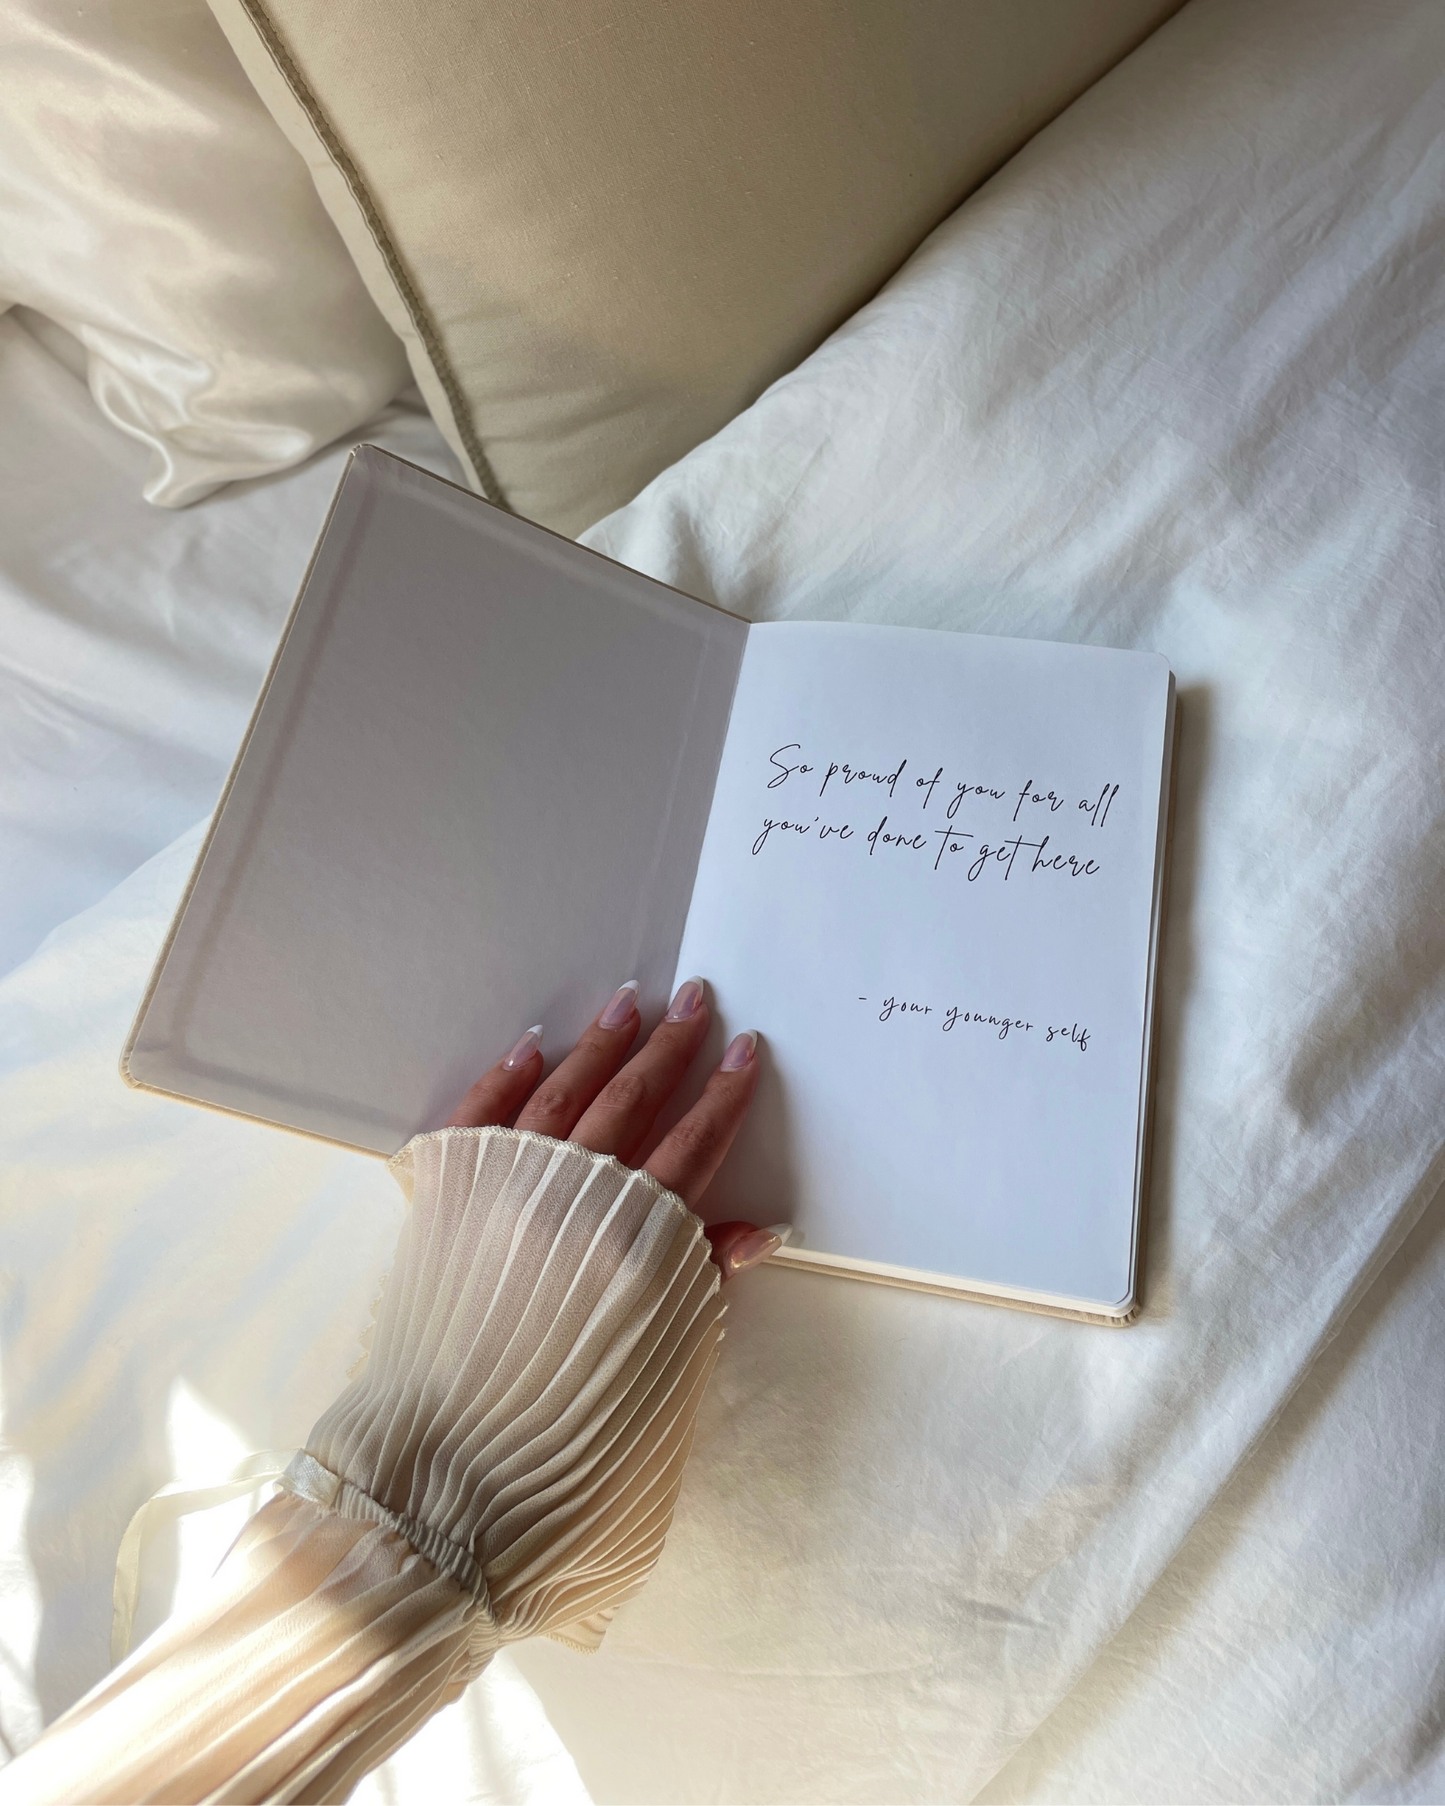 So proud of you for all
you've done to get here
- your younger self